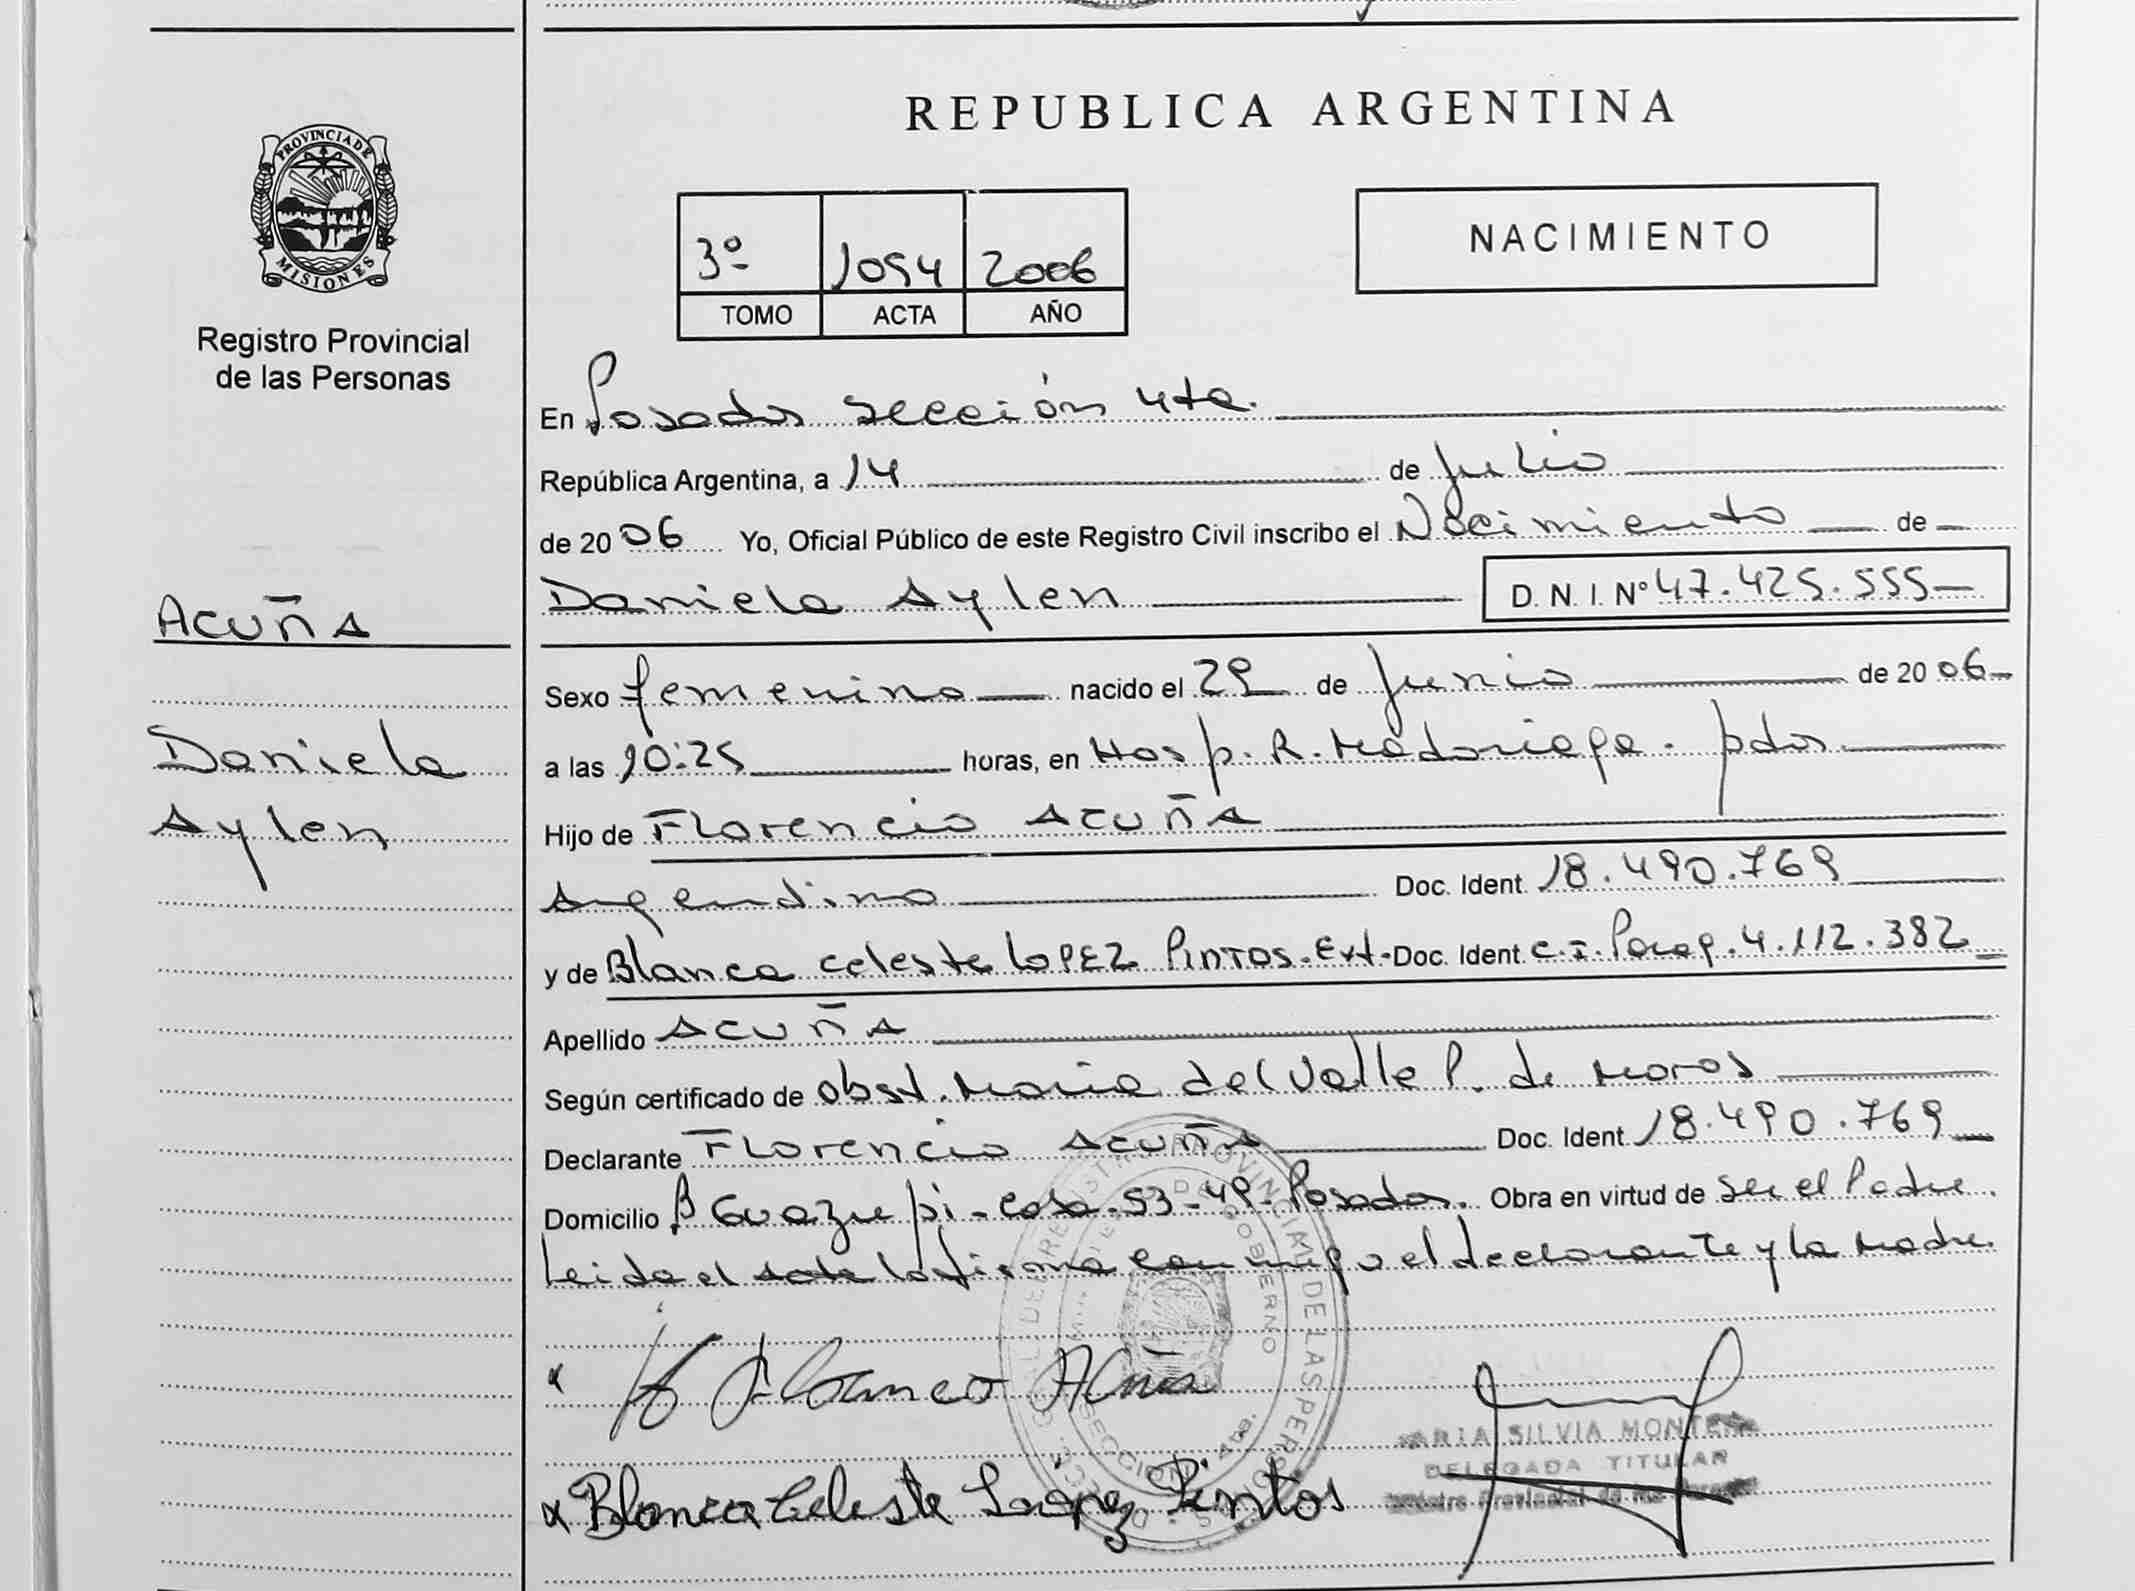 REPUBLICA ARGENTINA
PROVINCIA DE
MISIONES
Registro Provincial
de las Personas
3º 1054 2006
TOMO ACTA AÑO
NACIMIENTO
En Posadas sección 4ta.
República Argentina, a 14 de Julio
de 2006 Yo, Oficial Público de este Registro Civil inscribo el Nacimiento de
Daniela Aylen D.N.I. Nº 47.425.555
ACUÑA
Daniela
Aylen
Sexo femenino nacido el 29 de Junio de 2006
a las 10:25 horas, en Hosp. R. Madariaga. pdas
Hijo de Florencio ACUÑA
Argentino Doc. Ident. 18.490.769
y de Blanca Celeste LOPEZ PINTOS. Ext. Doc. Ident. C.I. Parag. 4.112.382
Apellido ACUÑA
Según certificado de obst. Maria del Valle P. de Moros
Declarante Florencio ACUÑA Doc. Ident. 18.490.769
Domicilio Bº Guazupi - Casa 53 - 49 - Posadas. Obra en virtud de ser el Padre.
Leida el acta la firma conmigo el declarante y la Madre.
Acuña
Blanca Celeste López Pintos
ARIA SILVIA MONTE
DELEGADA TITULAR
Provincial de las
REGISTRO PROVINCIAL DE LAS PERSONAS
DE GOBIERNO
SECCION 4ta.